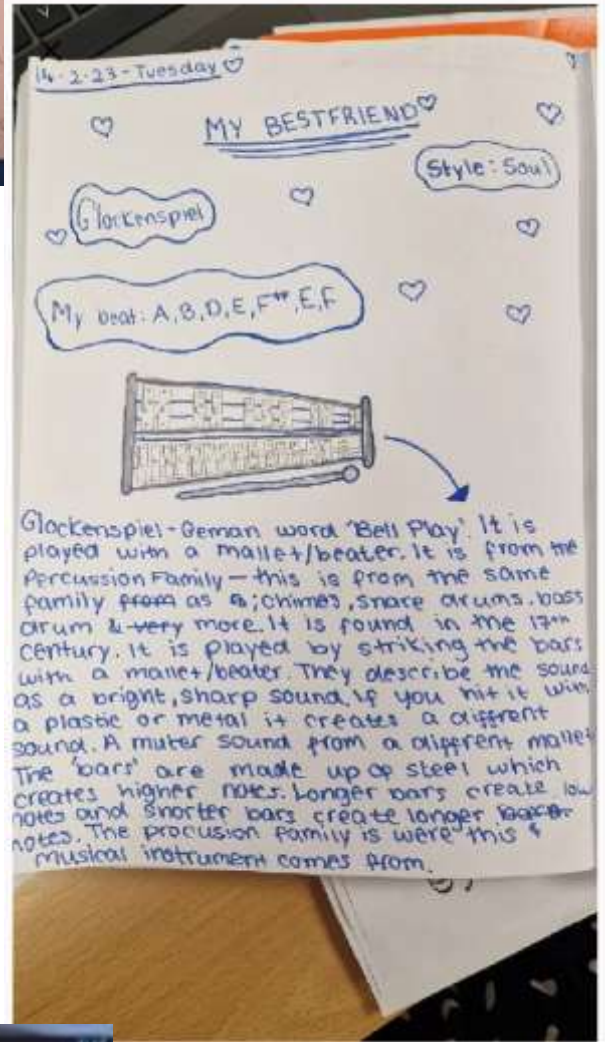 14.2.23-Tuesday
MY BESTFRIEND
Style: Soul
Glockenspiel
My beat: A,B,D,E,F#,E,F
Glockenspiel-German word 'Bell Play'. It is
played with a mallet/beater. It is from the
Percussion Family - this is from the same
family from as ; chimes, snare drums, bass
drum & very more. It is found in the 17th
century. It is played by striking the bars
with a mallet/beater. They describe the sound
as a bright, sharp sound. If you hit it with
a plastic or metal it creates a diffrent
sound. A muter sound from a different mallet
The 'bars' are made up of steel which
creates higher notes. Longer bars create low
notes and shorter bars create longer
notes. The procusion family is were this
musical instrument comes from.